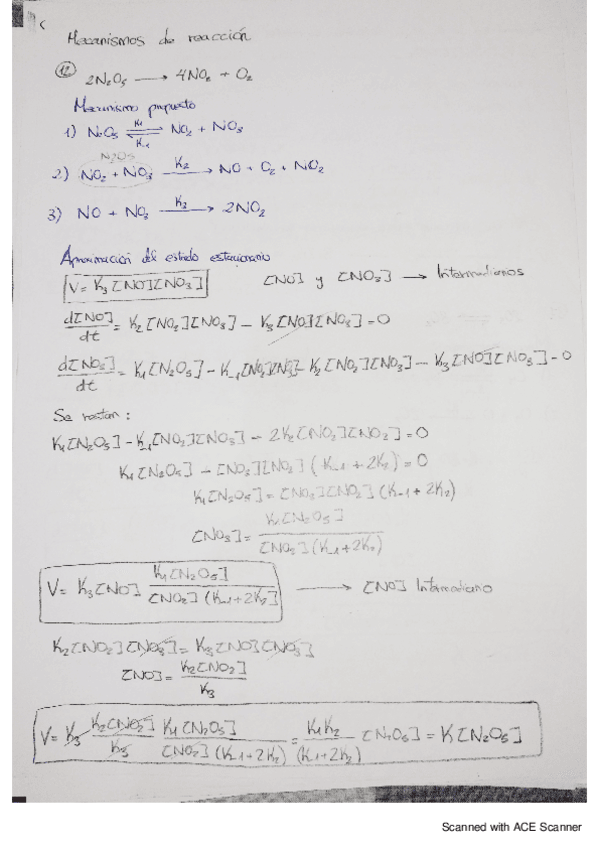 Mecanismos de reacción
12 2N₂O₅ ⟶ 4NO₂ + O₂
Mecanismo propuesto
1) N₂O₅ ⇌ NO₂ + NO₃
K₁
K₋₁
N₂O₅
2) NO₂ + NO₃ ⟶ NO + O₂ + NO₂
K₂
3) NO + NO₃ ⟶ 2NO₂
Aproximación del estado estacionario
V = K₃[NO][NO₃] [NO] y [NO₃] ⟶ Intermediarios
d[NO]/dt = K₂[NO₂][NO₃] − K₃[NO][NO₃] = 0
d[NO₃]/dt = K₁[N₂O₅] − K₋₁[NO₂][NO₃] − K₂[NO₂][NO₃] − K₃[NO][NO₃] = 0
Se restan:
K₁[N₂O₅] − K₋₁[NO₂][NO₃] − 2K₂[NO₂][NO₃] = 0
K₁[N₂O₅] − [NO₃][NO₂] (K₋₁ + 2K₂) = 0
K₁[N₂O₅] = [NO₃][NO₂] (K₋₁ + 2K₂)
[NO₃] = K₁[N₂O₅] / [NO₂] (K₋₁ + 2K₂)
V = K₃[NO] K₁[N₂O₅] / [NO₂] (K₋₁ + 2K₂) ⟶ [NO] Intermediario
K₂[NO₂][NO₃] = K₃[NO][NO₃]
[NO] = K₂[NO₂] / K₃
V = K₃ K₂[NO₂] / K₃ K₁[N₂O₅] / [NO₂] (K₋₁ + 2K₂) = K₁K₂ / (K₋₁ + 2K₂) [N₂O₅] = K[N₂O₅]
Scanned with ACE Scanner